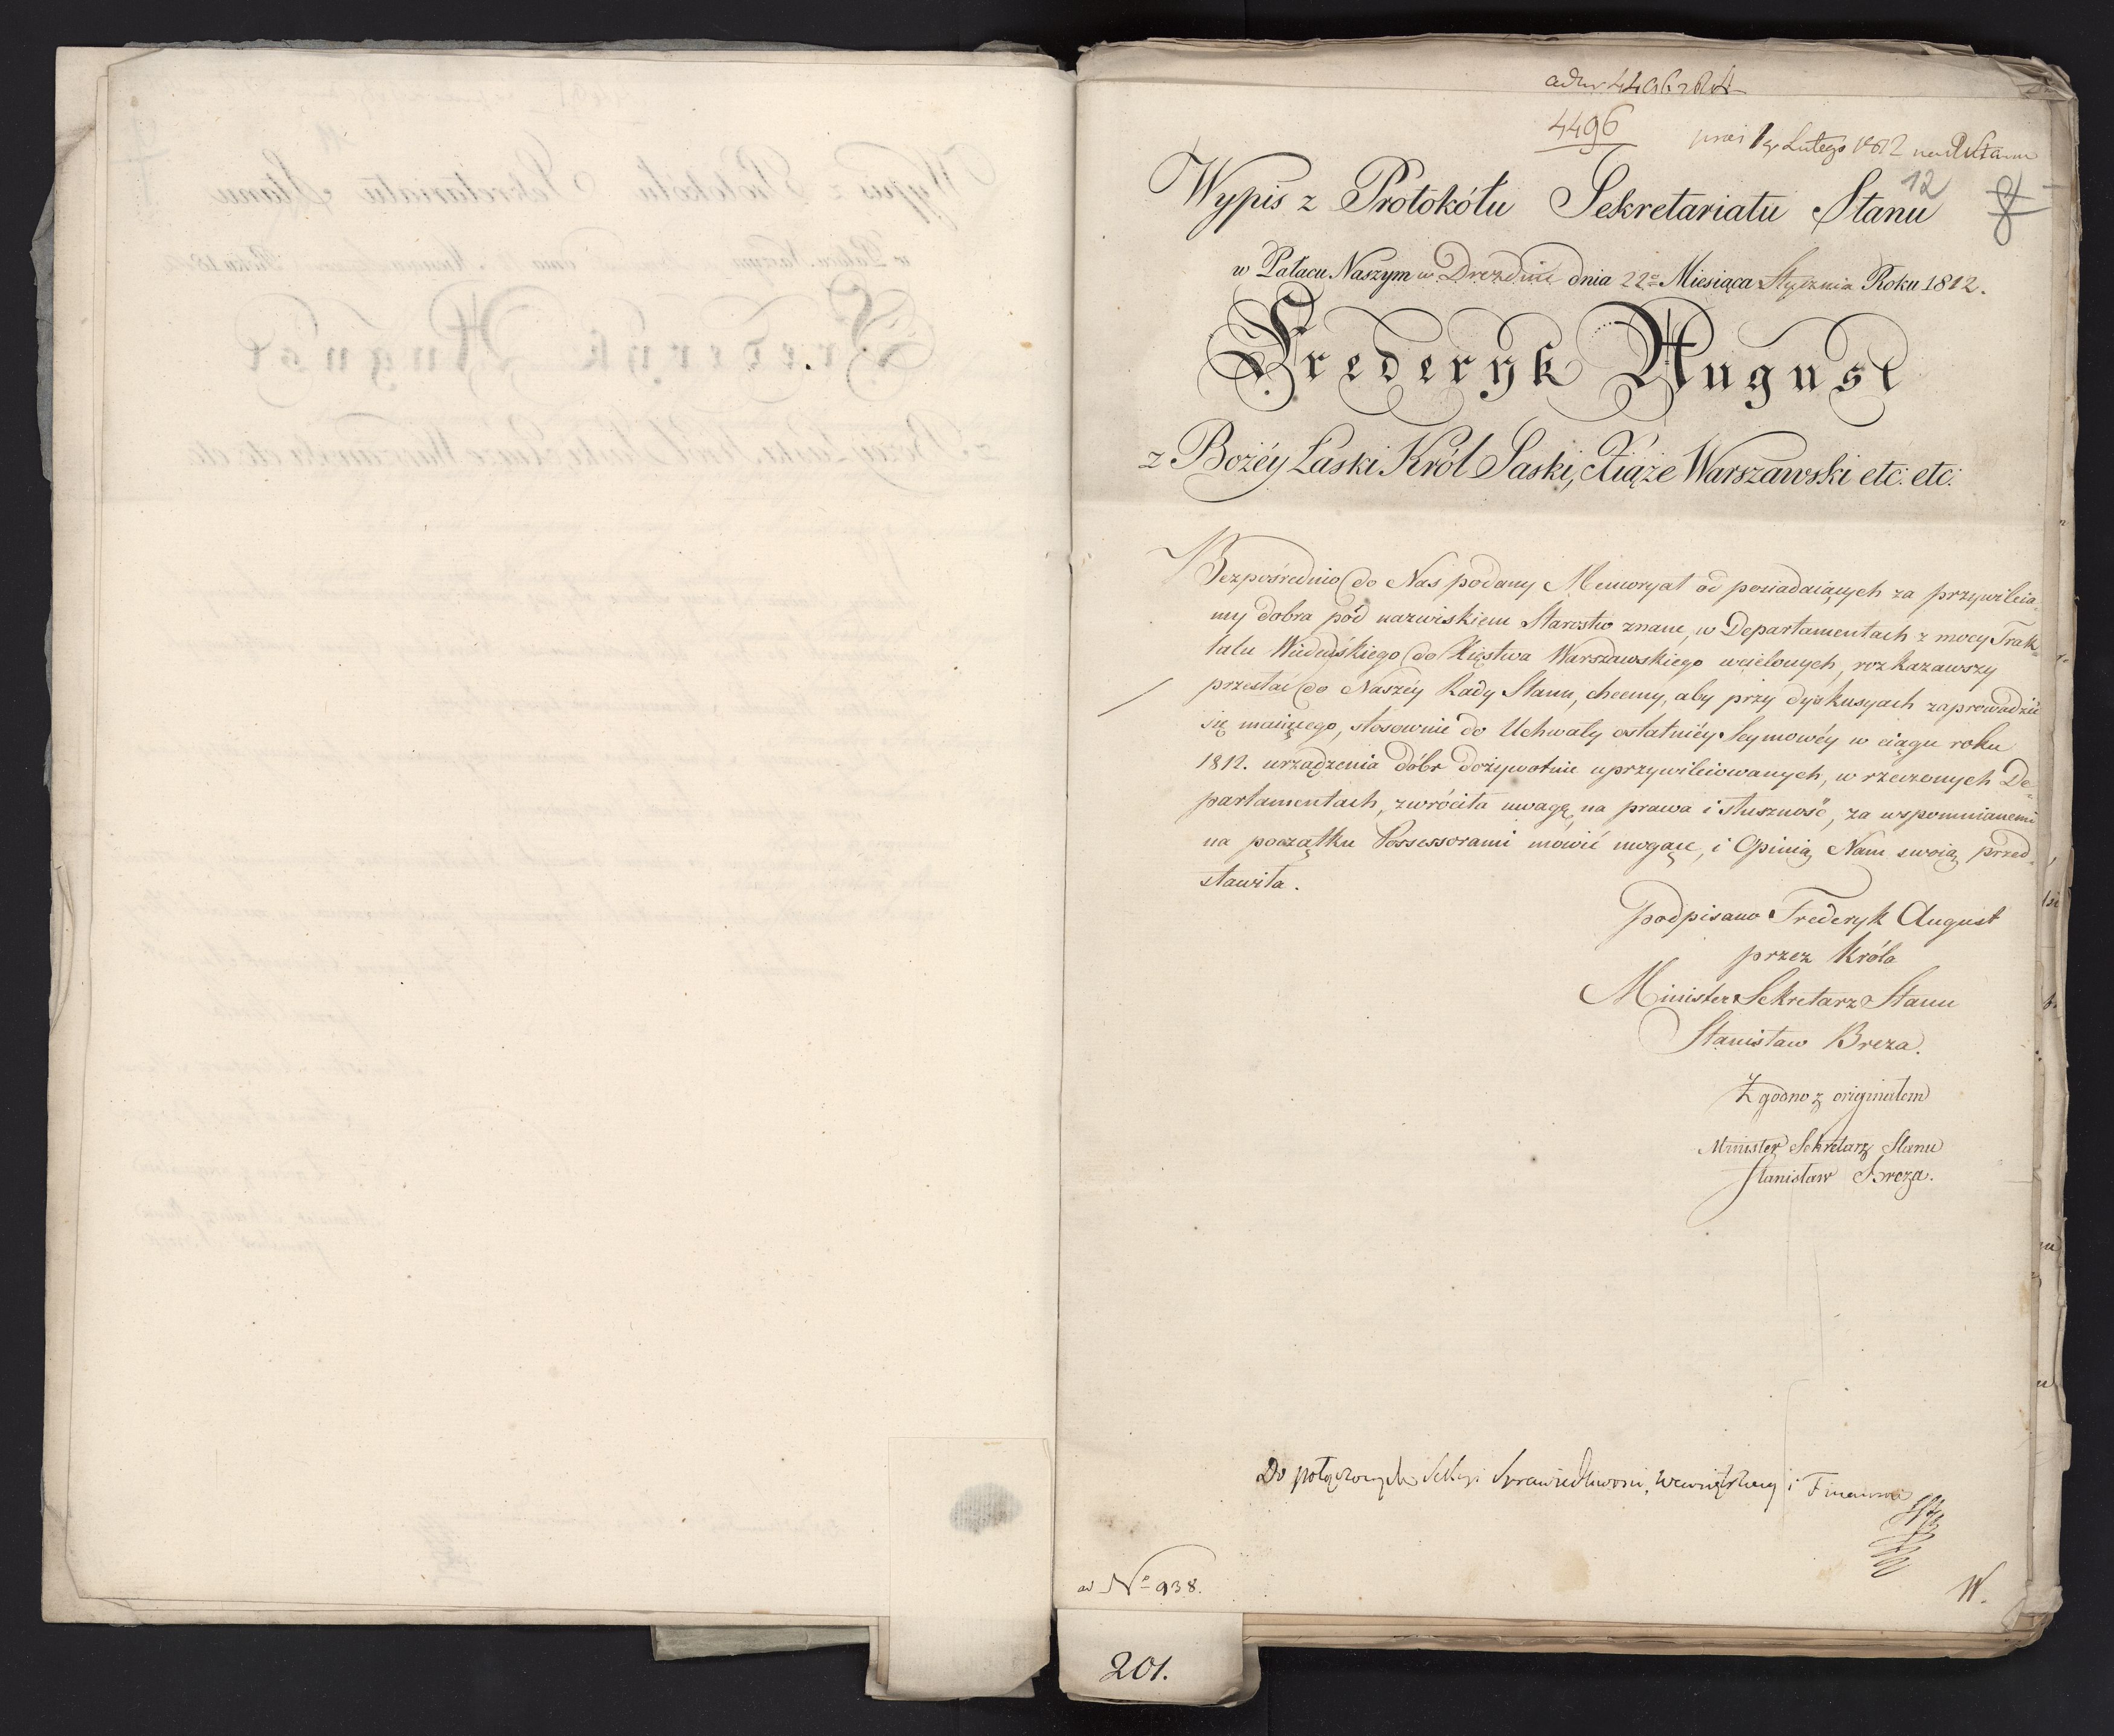 4496
12
Wypis z Protokółu Sekretariatu Stanu
w Pałacu Naszym w Dreznie dnia 22º Miesiąca Stycznia Roku 1812.
Frederyk August
z Bożéy Łaski Król Saski, Xiąże Warszawski etc: etc:
Bezpośrednio do Nas podany Memoryał od posiadaiących za przywileia-
my dobra pod nazwiskiem Starostw znane, w Departamentach z mocy Trak-
tatu Wiedeńskiego do Xięstwa Warszawskiego wcielonych, rozkazawszy
przesłać do Naszéy Rady Stanu, chcemy, aby przy dyskusyach zaprowadzić
się maiącego, stosownie do Uchwały ostatniéy Seymowéy w ciągu roku
1812. urządzenia dóbr dożywotnie uprzywileiowanych, w rzeczonych De-
partamentach, zwróciła uwagę na prawa i słuszność, za wspomnianemi
na początku Possessorami mówić mogące, i Opinią Nam swoią przed-
stawiła.
podpisano Frederyk August
przez Króla
Minister Sekretarz Stanu
Stanisław Breza.
Zgodno z originałem
Minister Sekretarz Stanu
Stanisław Breza.
Do połączonych Sekcyi Sprawiedliwości, Wewnętrzney i
ad Nº 938.
W.
201.